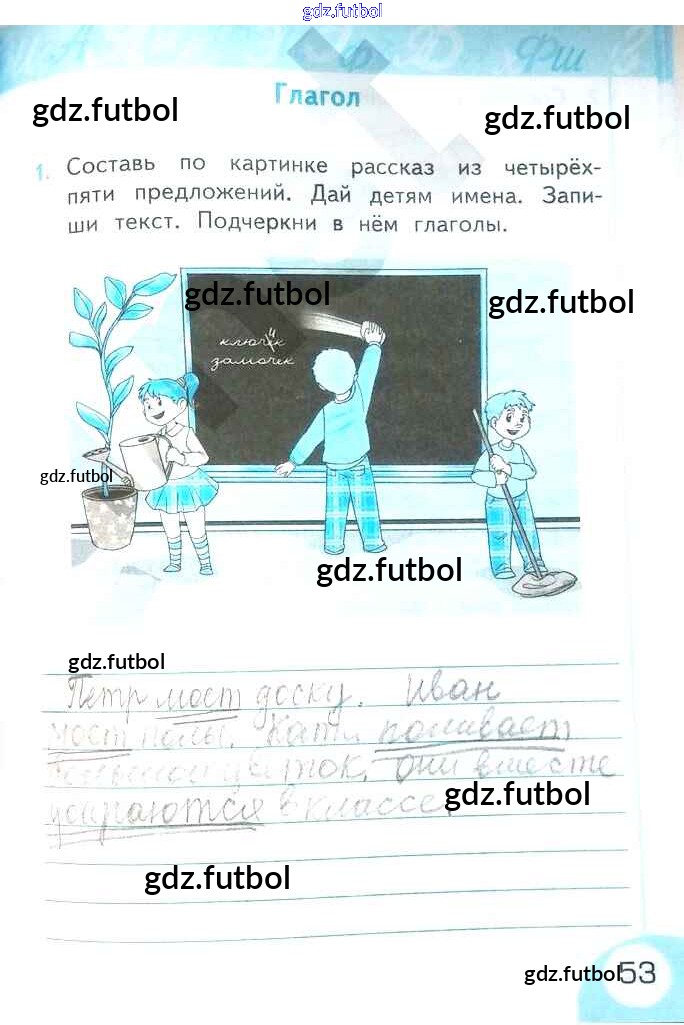 gdz.futbol
Глагол
gdz.futbol
gdz.futbol
1. Составь по картинке рассказ из четырёх-
пяти предложений. Дай детям имена. Запи-
ши текст. Подчеркни в нём глаголы.
gdz.futbol
gdz.futbol
ключик
замочек
gdz.futbol
gdz.futbol
gdz.futbol
Петр моет доску. Иван
моет полы. Катя поливает
большой цветок. Они вместе
убираются в классе.
gdz.futbol
gdz.futbol
gdz.futbol
53